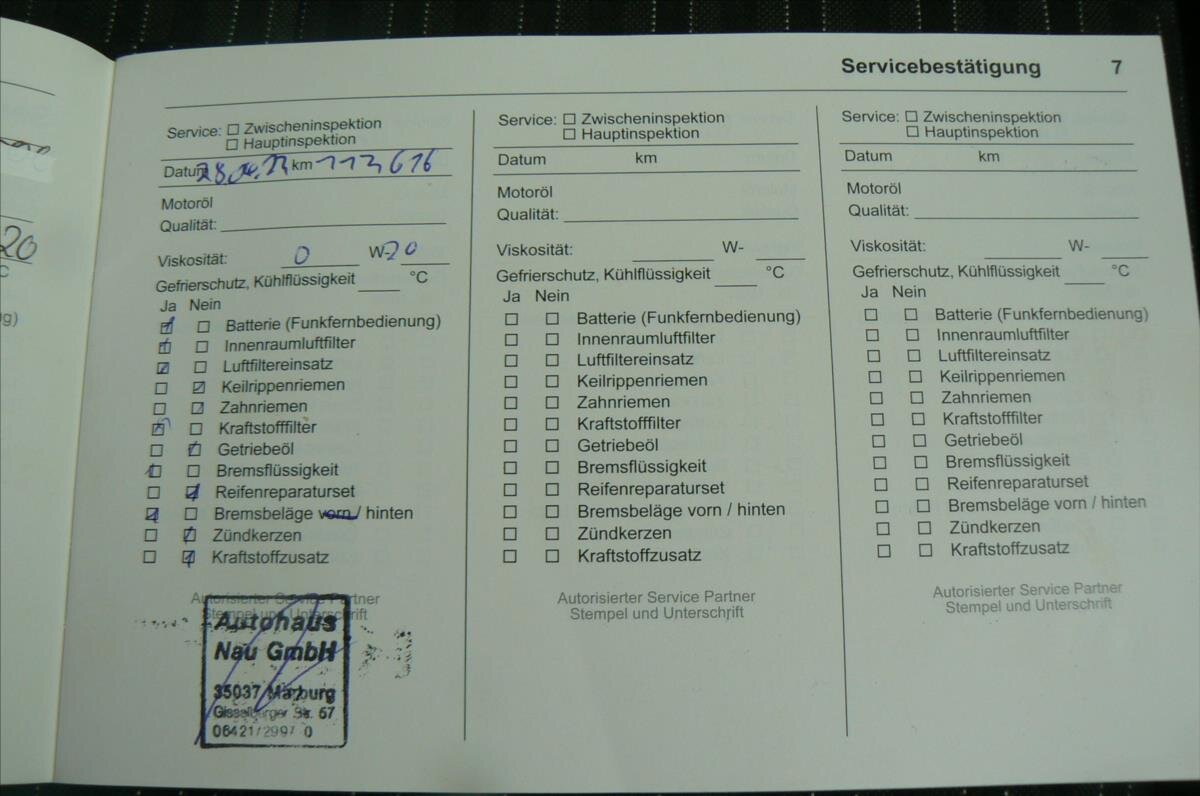 Servicebestätigung 7
Service: Zwischeninspektion
Hauptinspektion
Datum km 113616
Motoröl
Qualität:
Viskosität: 0 W-20
Gefrierschutz, Kühlflüssigkeit °C
Ja Nein
Batterie (Funkfernbedienung)
Innenraumluftfilter
Luftfiltereinsatz
Keilrippenriemen
Zahnriemen
Kraftstofffilter
Getriebeöl
Bremsflüssigkeit
Reifenreparaturset
Bremsbeläge vorn / hinten
Zündkerzen
Kraftstoffzusatz
Autorisierter Service Partner
Stempel und Unterschrift
Autohaus
Nau GmbH
35037 Marburg
Gisselberger Str. 57
06421/2997 0
Service: Zwischeninspektion
Hauptinspektion
Datum km
Motoröl
Qualität:
Viskosität: W-
Gefrierschutz, Kühlflüssigkeit °C
Ja Nein
Batterie (Funkfernbedienung)
Innenraumluftfilter
Luftfiltereinsatz
Keilrippenriemen
Zahnriemen
Kraftstofffilter
Getriebeöl
Bremsflüssigkeit
Reifenreparaturset
Bremsbeläge vorn / hinten
Zündkerzen
Kraftstoffzusatz
Autorisierter Service Partner
Stempel und Unterschrift
Service: Zwischeninspektion
Hauptinspektion
Datum km
Motoröl
Qualität:
Viskosität: W-
Gefrierschutz, Kühlflüssigkeit °C
Ja Nein
Batterie (Funkfernbedienung)
Innenraumluftfilter
Luftfiltereinsatz
Keilrippenriemen
Zahnriemen
Kraftstofffilter
Getriebeöl
Bremsflüssigkeit
Reifenreparaturset
Bremsbeläge vorn / hinten
Zündkerzen
Kraftstoffzusatz
Autorisierter Service Partner
Stempel und Unterschrift
20